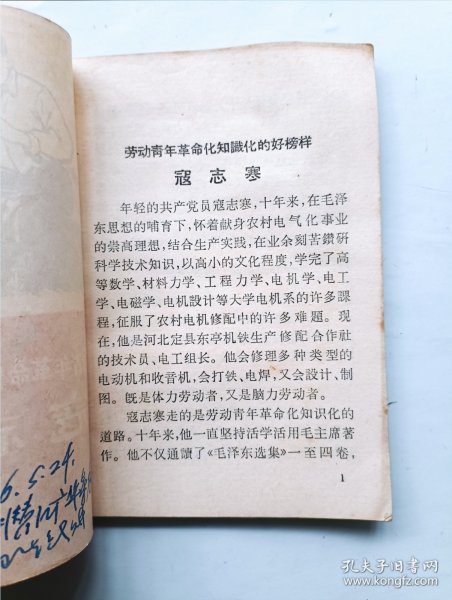 劳动青年革命化知識化的好榜样
寇志寒
年轻的共产党员寇志寒，十年来，在毛泽
东思想的哺育下，怀着献身农村电气化事业
的崇高理想，结合生产实践，在业余刻苦鑽研
科学技术知识，以高小的文化程度，学完了高
等数学、材料力学、工程力学、电机学、电工
学、电磁学、电机設计等大学电机系的许多課
程，征服了农村电机修配中的许多难题。现
在，他是河北定县东亭机铁生产修配合作社
的技术员、电工组长。他会修理多种类型的
电动机和收音机，会打铁、电焊，又会設计、制
图。既是体力劳动者，又是脑力劳动者。
寇志寒走的是劳动青年革命化知识化的
道路。十年来，他一直坚持活学活用毛主席著
作。他不仅通讀了《毛泽东选集》一至四卷，
1
6.5.24.
孔夫子旧书网
book.kongfz.com